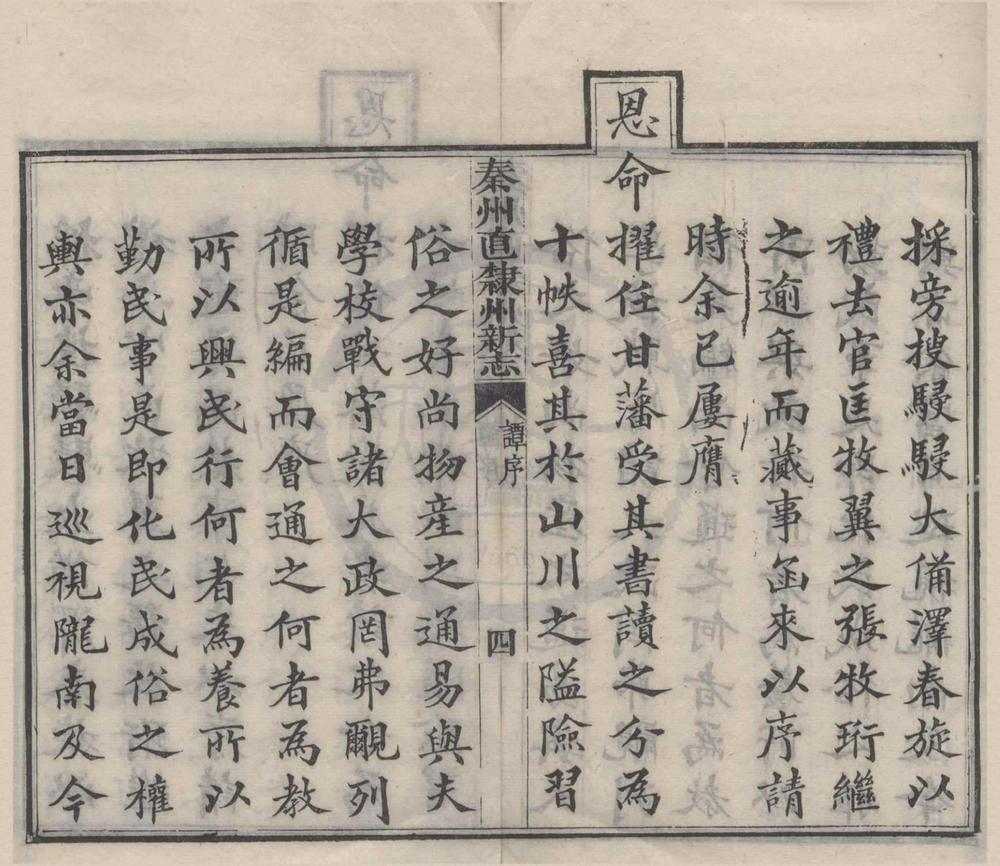 採旁搜駸駸大備澤春旋以
禮去官匡牧翼之張牧珩繼
之逾年而蕆事函來以序請
時余已屢膺
恩命
擢任甘藩受其書讀之分為
十帙喜其於山川之隘險習
秦州直隸州新志
譚序
四
俗之好尚物產之通易與夫
學校戰守諸大政罔弗覼列
循是編而會通之何者為教
所以興民行何者為養所以
勤民事是即化民成俗之權
輿亦余當日巡視隴南及今